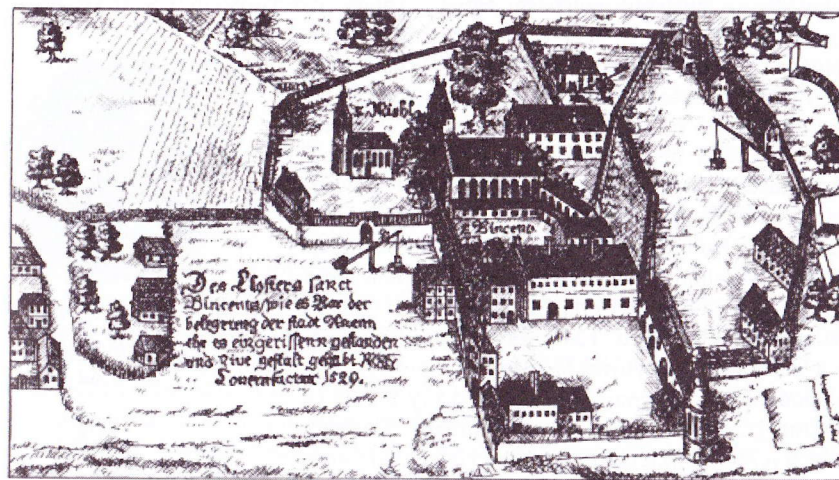 S. Michl
S. Vincents
Des Closters sanct
Vincents/wie es Vor der
belegerung der stadt
ehe es eingerissenn gestanden
und gestalt gehabt
Conterfactur 1529.